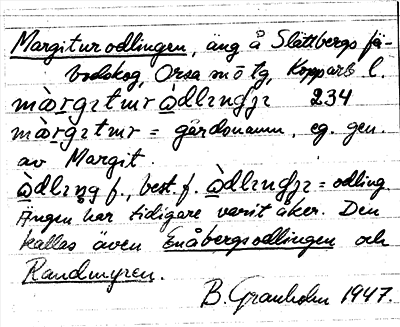 Margiturodlingen, äng å Slättbergs fä-
bodskog, Orsa sn o tg, Kopparb l.
màrgɪtɯr ὰdlɪŋdȷɪ 234
màrgɪtɯr = gårdsnamn, eg. gen.
av Margit.
ὰdlɪŋg f., best. f. ὰdlɪŋdȷɪ = odling
Ängen har tidigare varit åker. Den
kallas även Enåbergsodlingen och
Randmyren.
B. Granholm 1947.